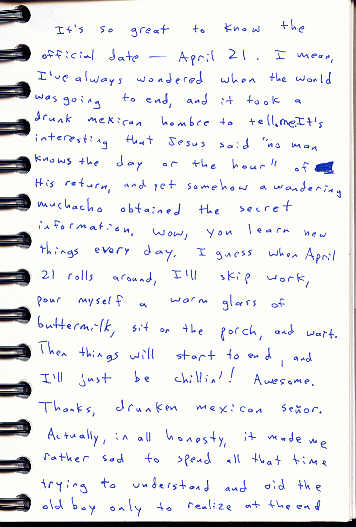 It's so great to know the
official date — April 21. I mean,
I've always wondered when the world
was going to end, and it took a
drunk mexican hombre to tell me. It's
interesting that Jesus said "no man
knows the day or the hour" of
His return, and yet somehow a wandering
muchacho obtained the secret
information. Wow, you learn new
things every day. I guess when April
21 rolls around, I'll skip work,
pour myself a warm glass of
buttermilk, sit on the porch, and wait.
Then things will start to end, and
I'll just be chillin'! Awesome.
Thanks, drunken mexican señor.
Actually, in all honesty, it made me
rather sad to spend all that time
trying to understand and aid the
old boy only to realize at the end